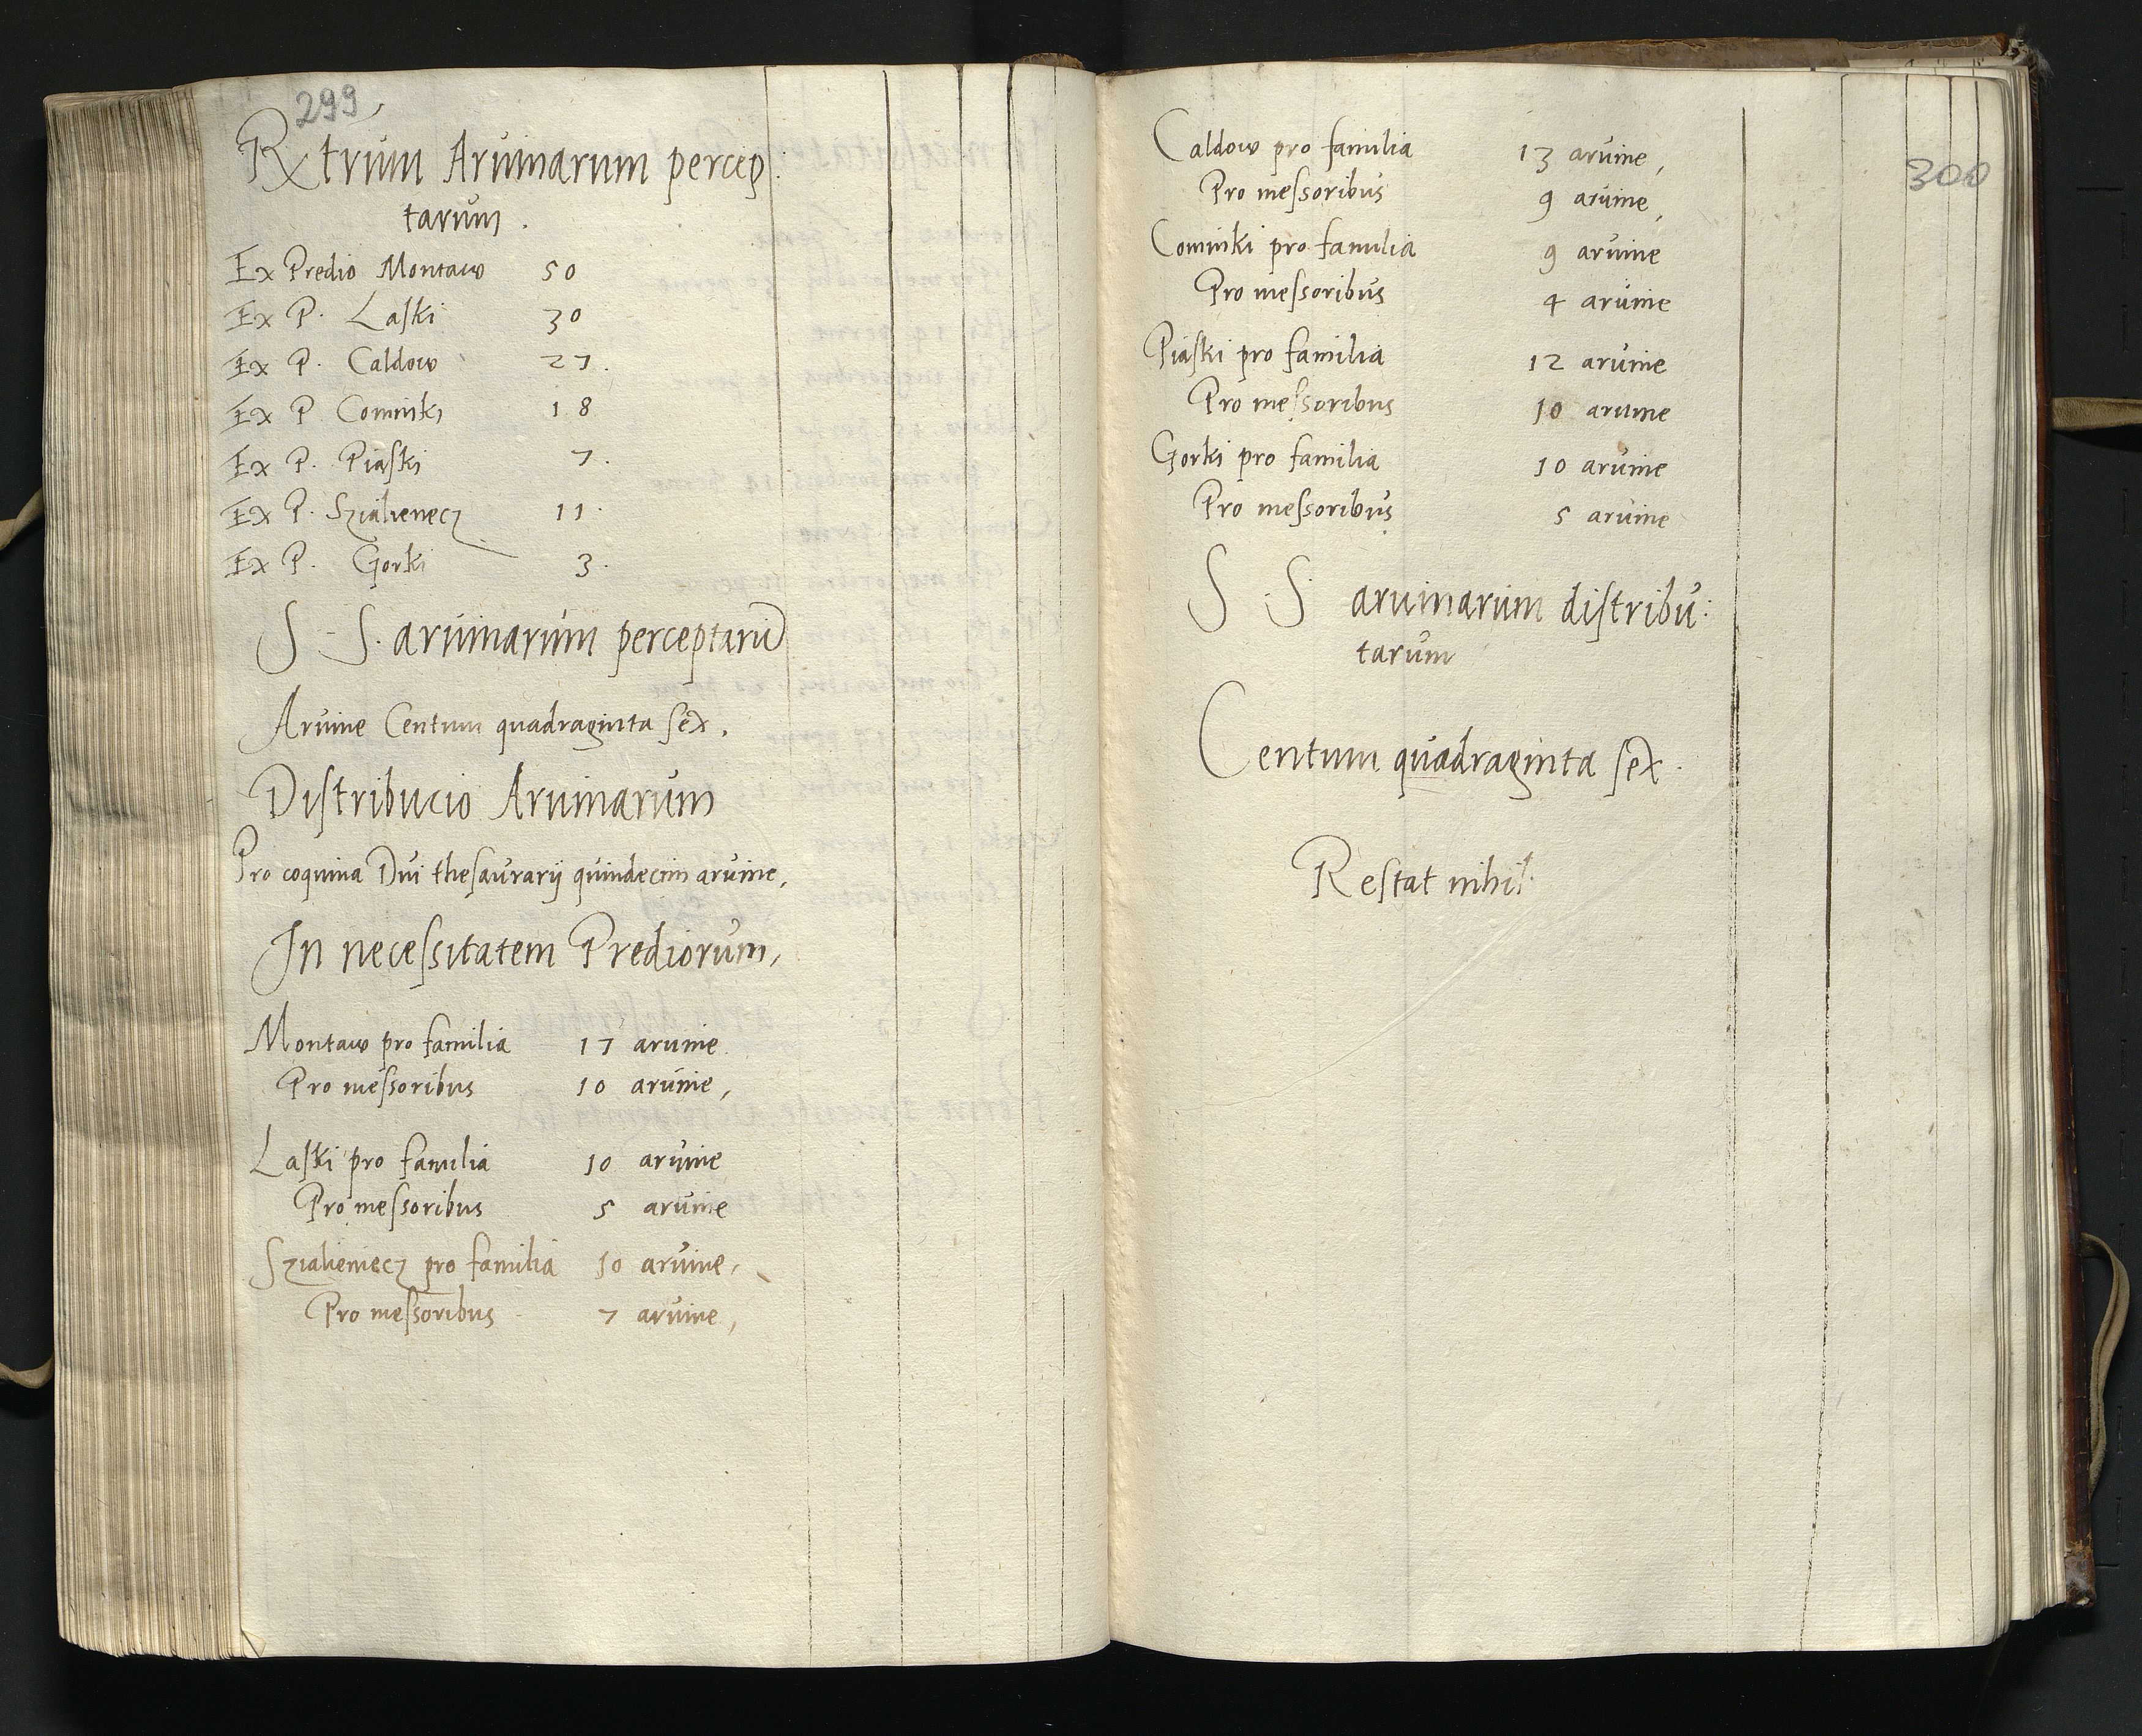 299
Rxtrum Aruinarum percep:
tarum.
Ex Predio Montaw 50
Ex P. Laski 30
Ex P. Caldow 27.
Ex P Cominki 18
Ex P. Piaski 7.
Ex P. Szialienecz 11.
Ex P. Gorki 3.
S - S. aruinarum perceptarũ
Aruine Centum quadraginta sex.
Distribucio Aruinarum
Pro coquina Dni thesaurarij quindecim aruine,
In necessitatem Prediorum,
Montaw pro familia 17 aruine
Pro messoribus 10 aruine,
Laski pro familia 10 aruine
Pro messoribus 5 aruine
Szialieniecz pro familia 10 aruine,
Pro messoribus 7 aruine,
300
Caldow pro familia 13 aruine,
Pro messoribus 9 aruine,
Cominki pro familia 9 aruine
Pro messoribus 4 aruine
Piaski pro familia 12 aruine
Pro messoribus 10 aruine
Gorki pro familia 10 aruine
Pro messoribus 5 aruine
S S. aruinarum distribu:
tarum
Centum quadraginta sex.
Restat nihil.